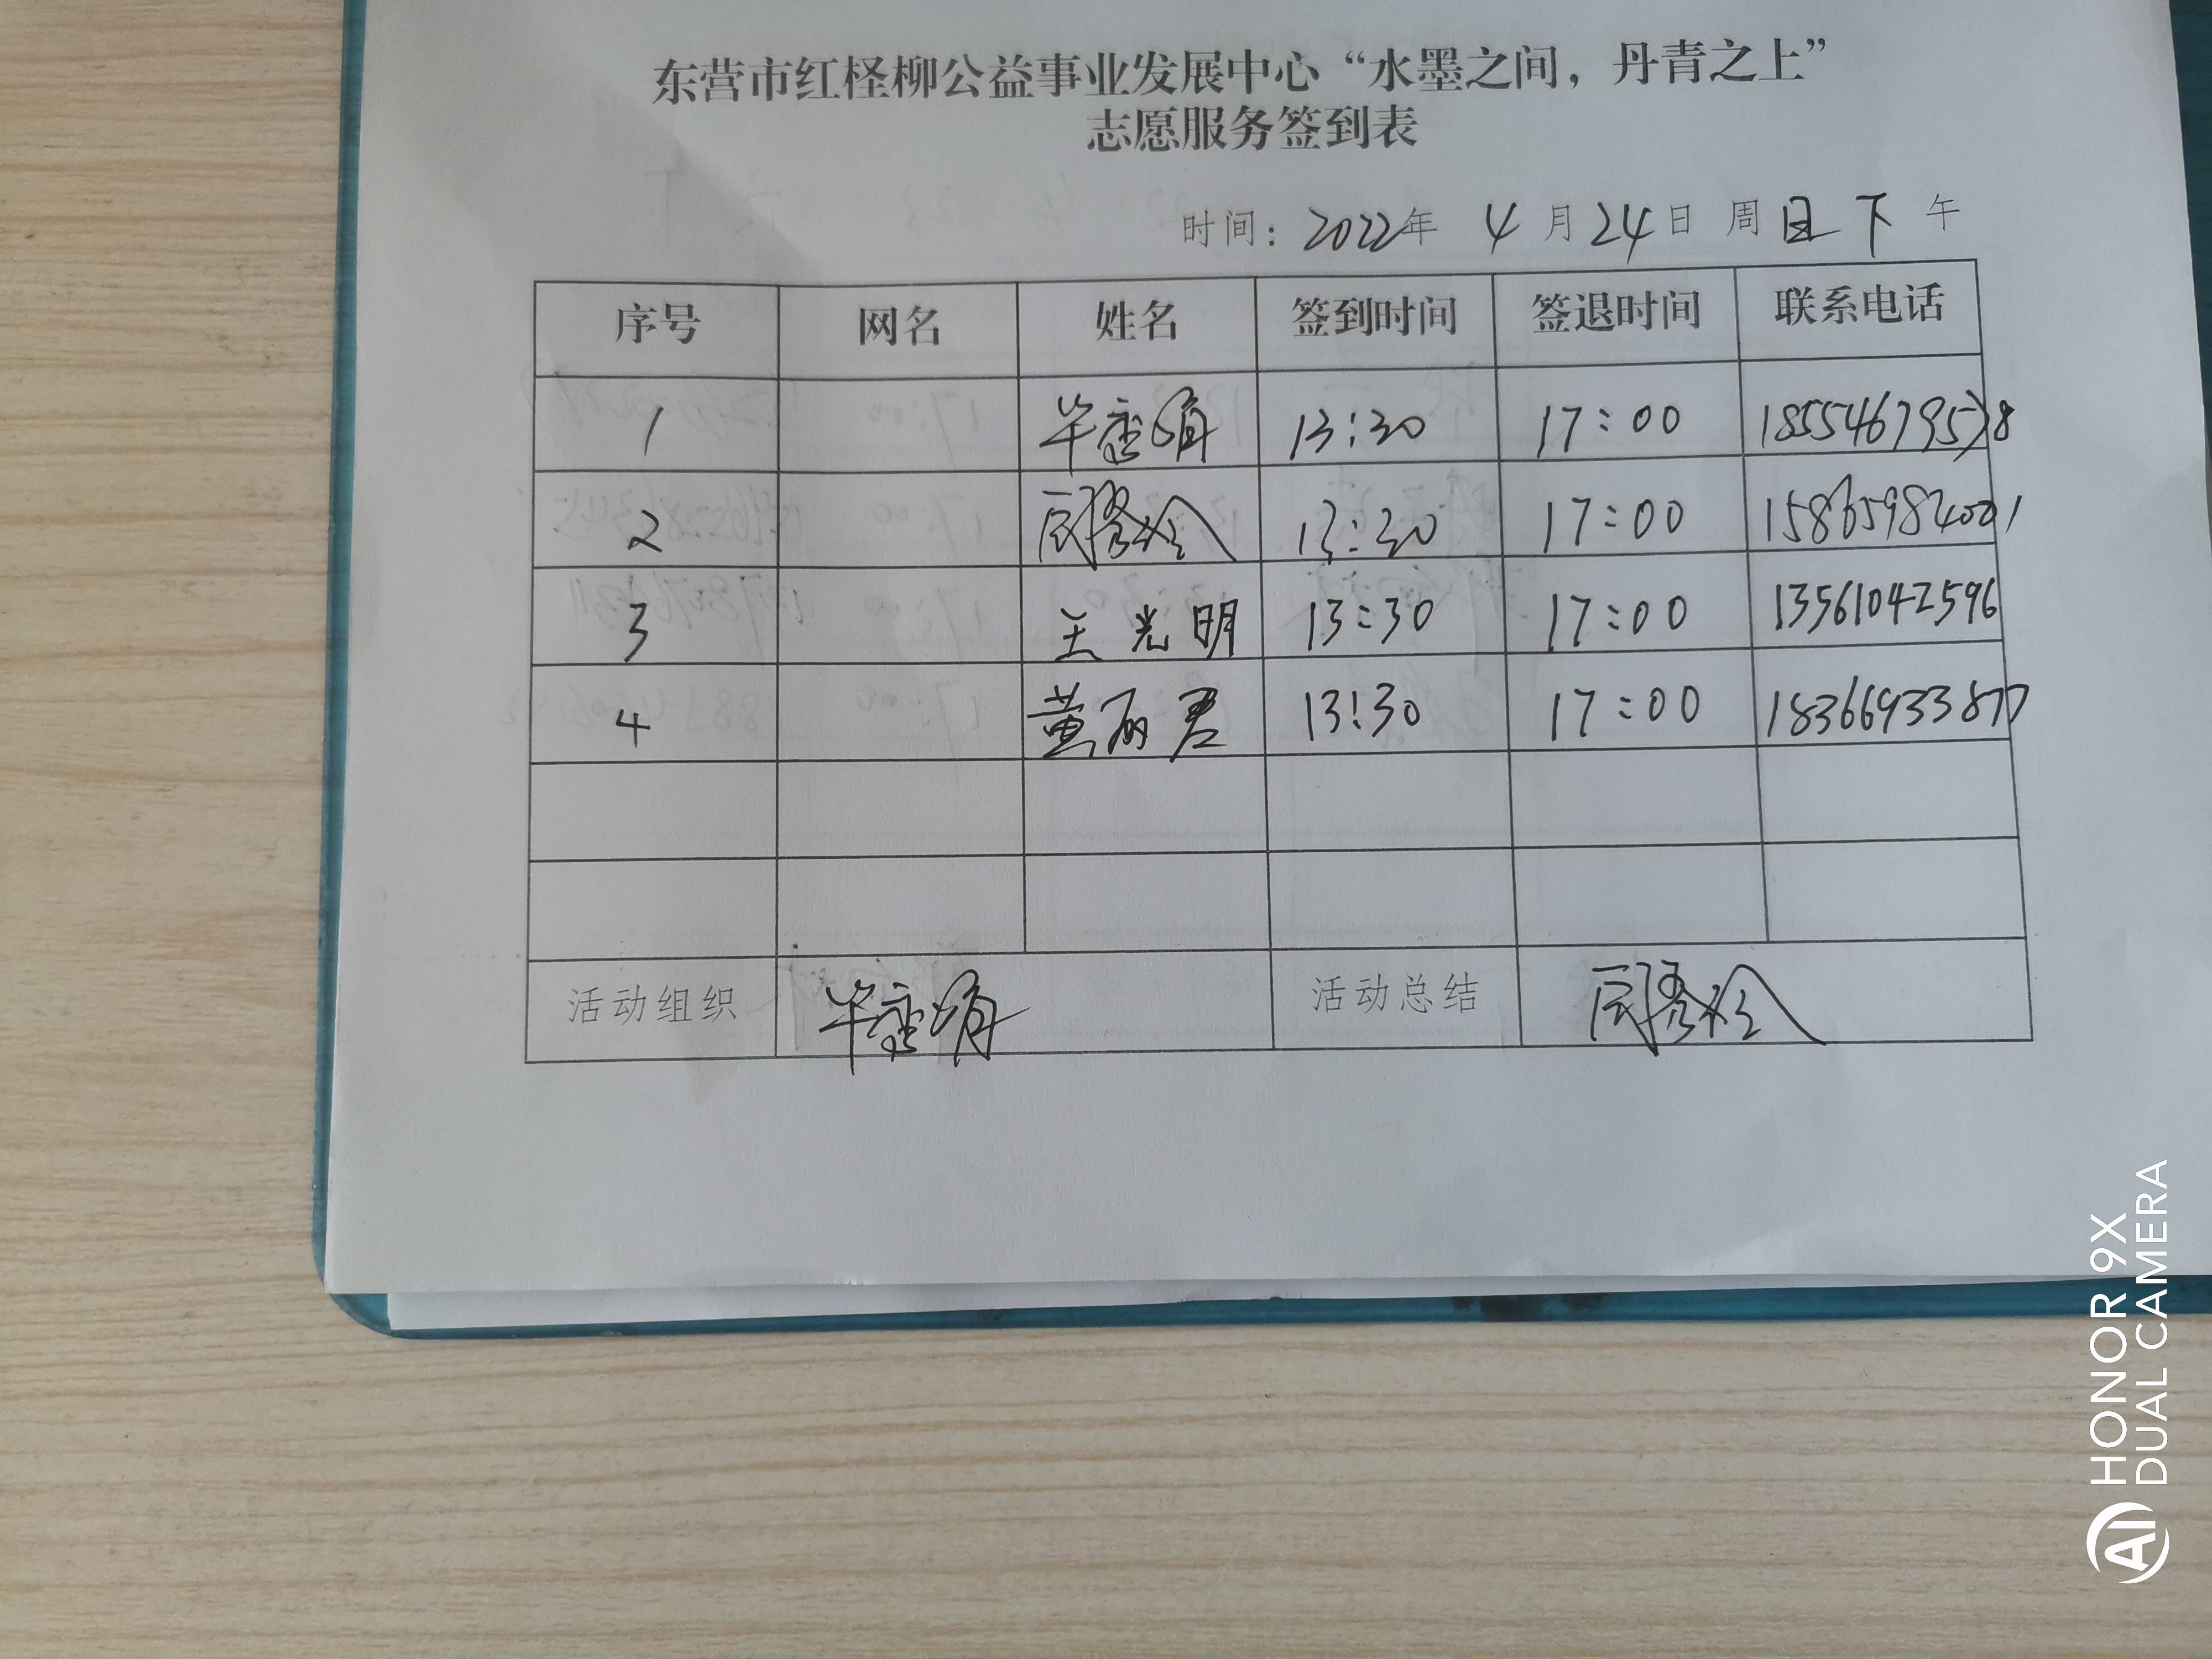 东营市红柽柳公益事业发展中心“水墨之间，丹青之上”
志愿服务签到表
时间：2022年 4月24日 周日 下午
序号 网名 姓名 签到时间 签退时间 联系电话
1 13:30 17:00 185546795
2 13:30 17:00 15865984001
3 王光明 13:30 17:00 13561042596
4 黄丽君 13:30 17:00 18366933877
活动组织 活动总结
HONOR 9X
DUAL CAMERA
AI